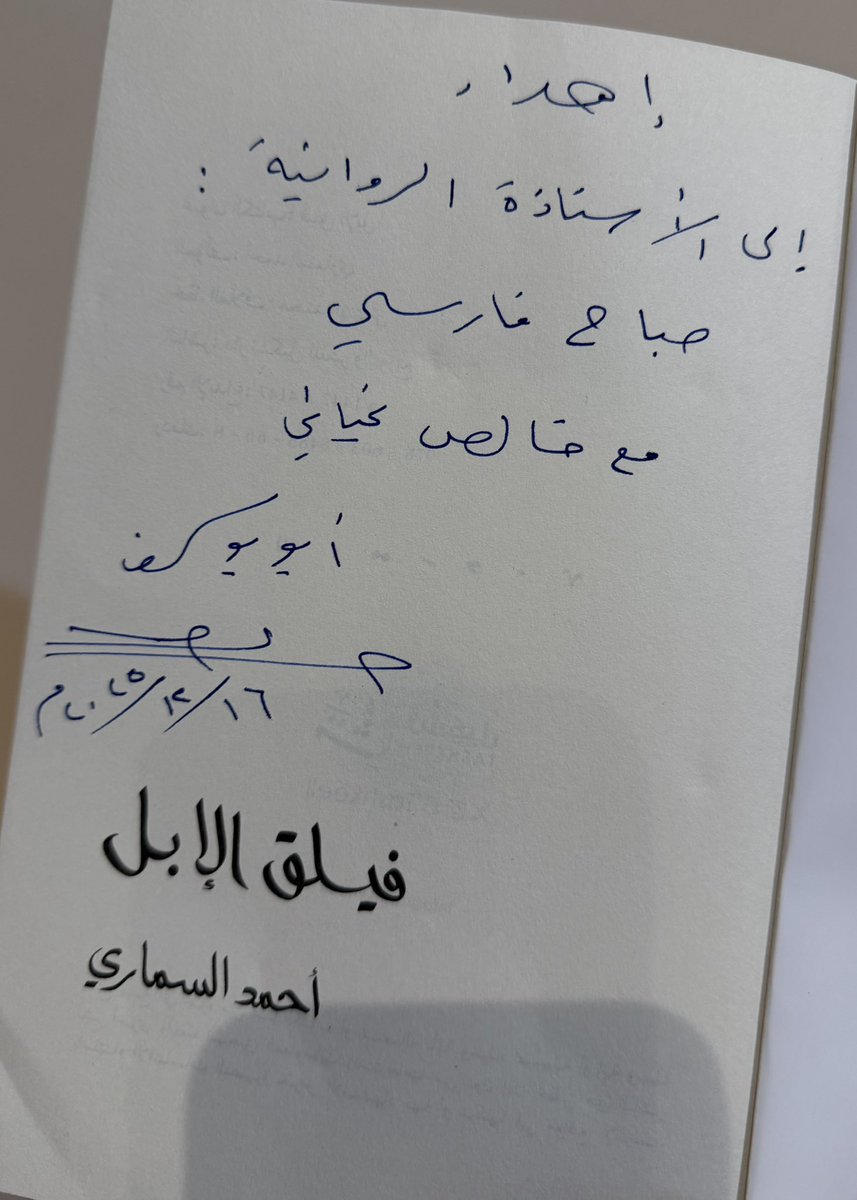 إهداء
إلى الأستاذة الروائية :
صباح فارسي
مع خالص تحياتي
أبو يوسف
١٦/١٢/٢٠٢٥م
فيلق الإبل
أحمد السماري